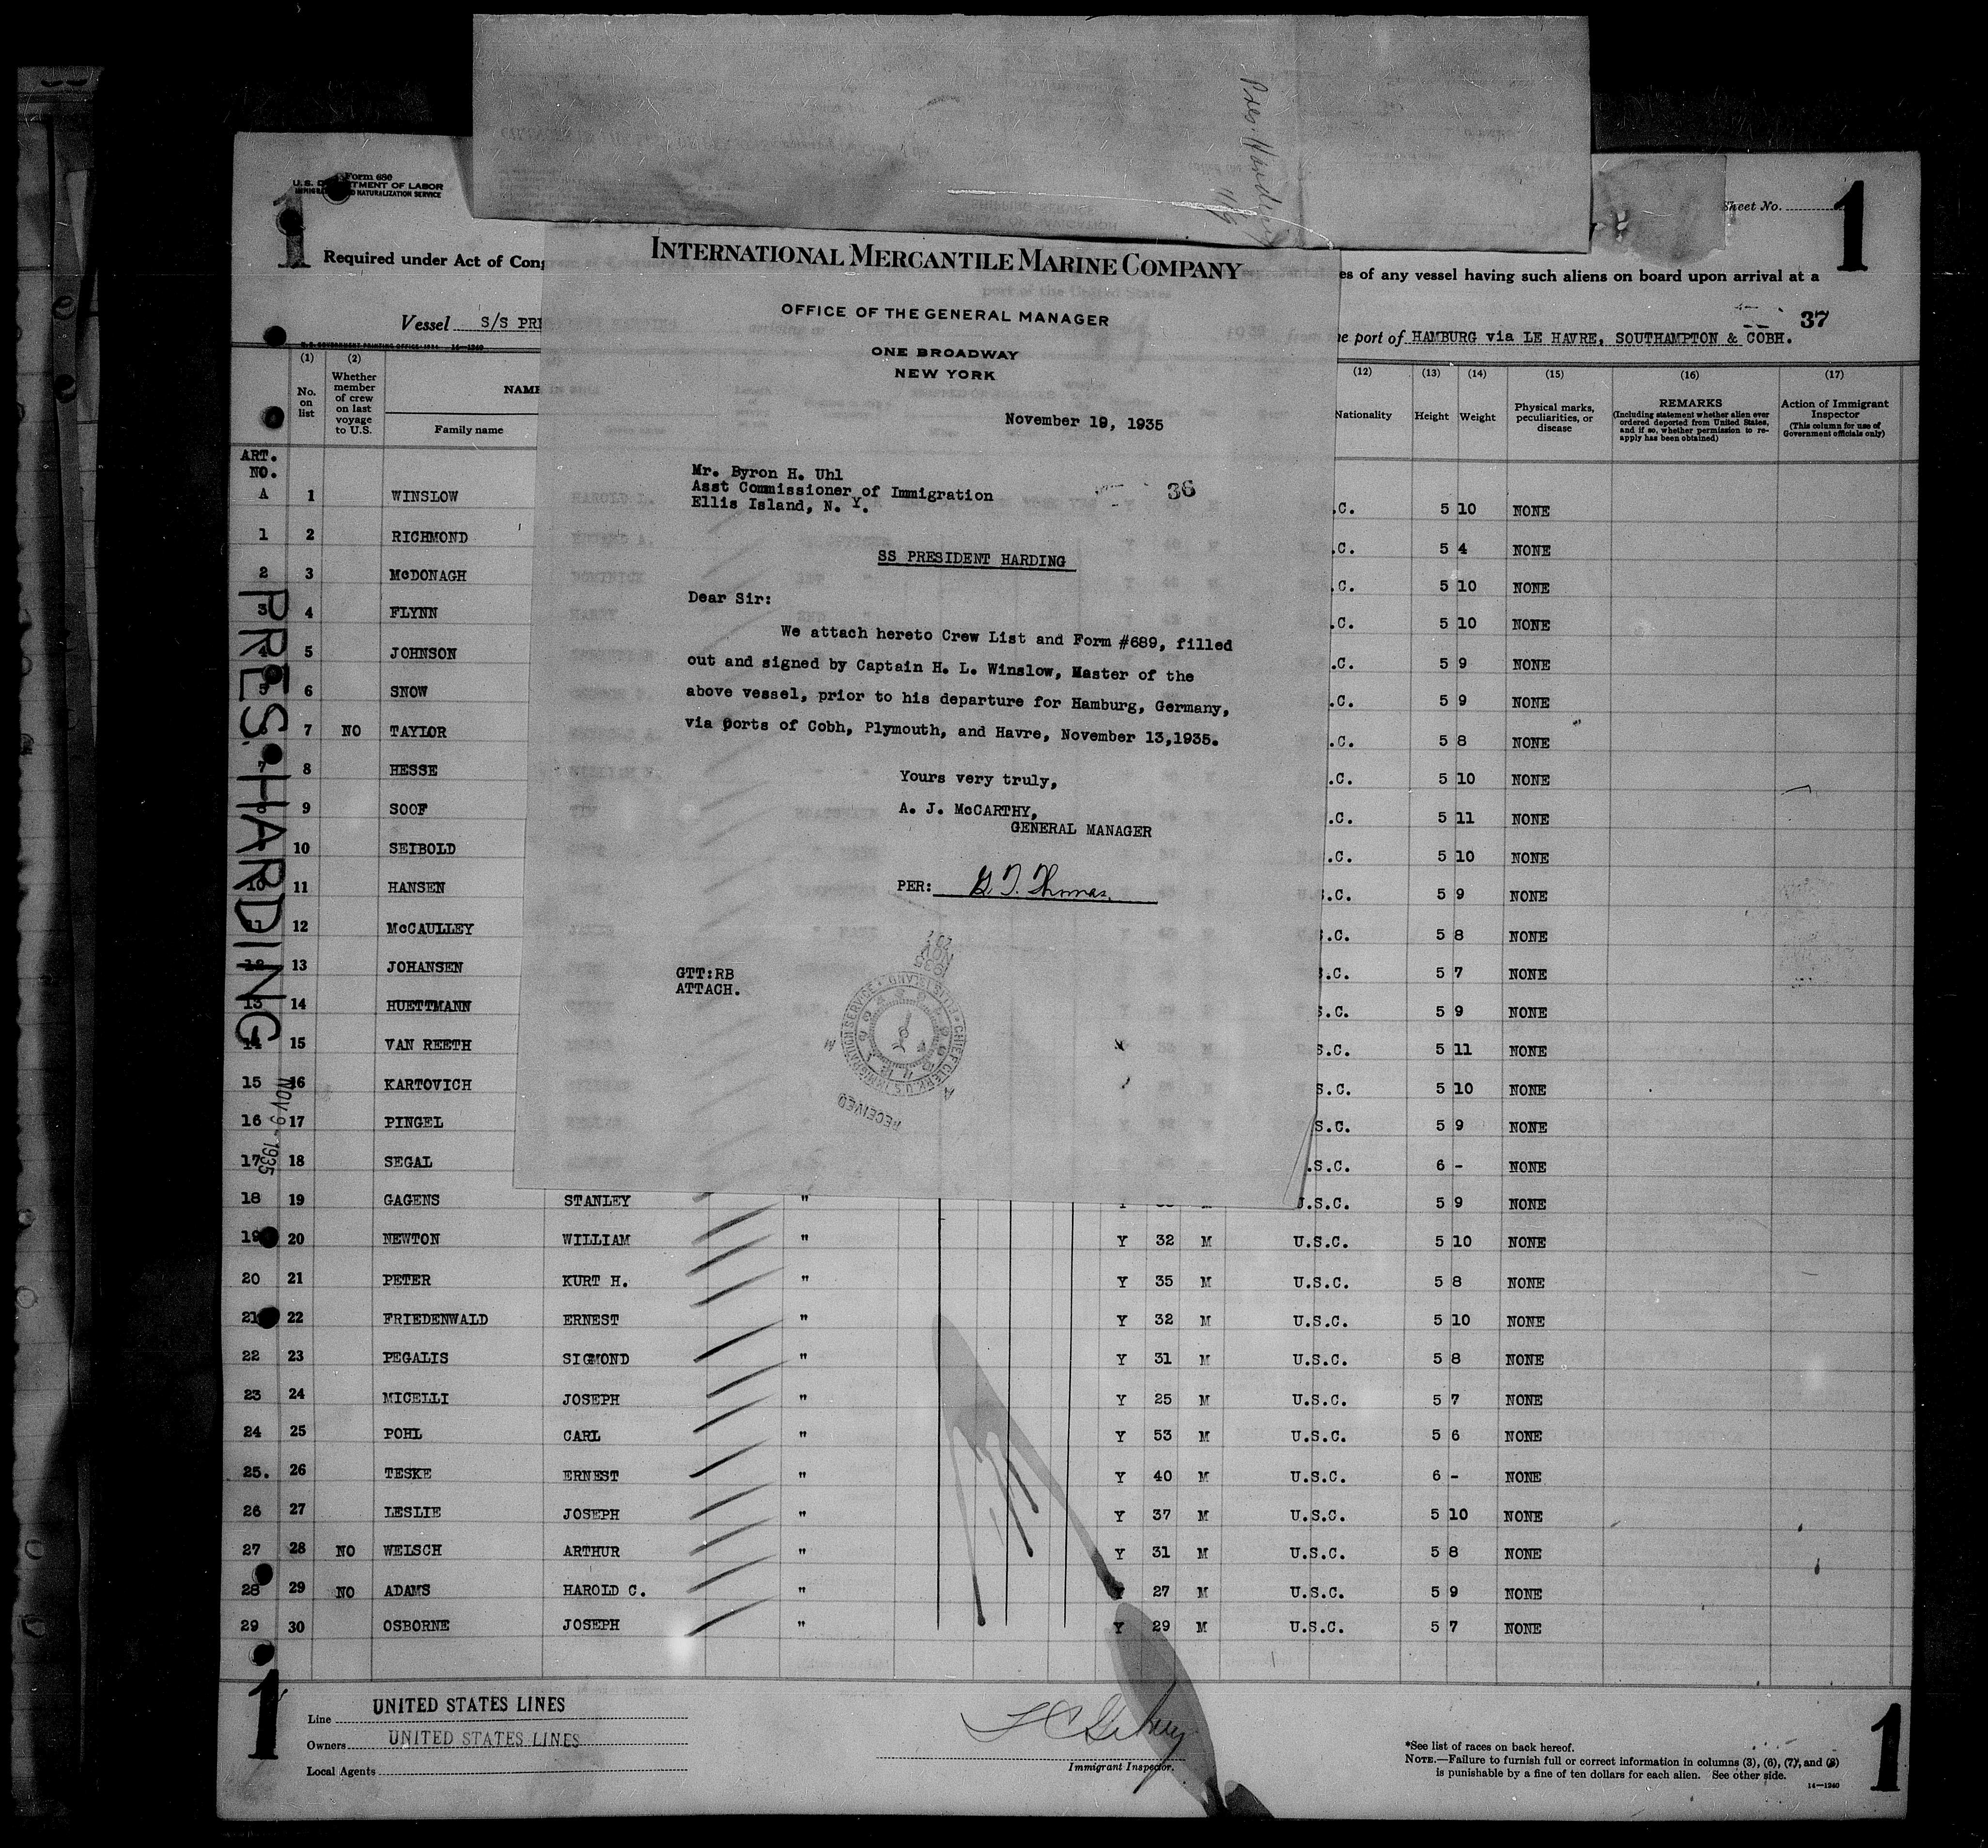 Pres. Harding
11/9
Form 680
U.S. DEPARTMENT OF LABOR
IMMIGRATION AND NATURALIZATION SERVICE
Sheet No.
1 1
Required under Act of Cong
es of any vessel having such aliens on board upon arrival at a
Vessel S/S PRE
he port of HAMBURG via LE HAVRE, SOUTHAMPTON & COBH.
37
INTERNATIONAL MERCANTILE MARINE COMPANY
OFFICE OF THE GENERAL MANAGER
ONE BROADWAY
NEW YORK
November 19, 1935
Mr. Byron H. Uhl
Asst Commissioner of Immigration
Ellis Island, N. Y.
36
SS PRESIDENT HARDING
Dear Sir:
We attach hereto Crew List and Form #689, filled
out and signed by Captain H. L. Winslow, Master of the
above vessel, prior to his departure for Hamburg, Germany,
via ports of Cobh, Plymouth, and Havre, November 13,1935.
Yours very truly,
A. J. McCARTHY,
GENERAL MANAGER
PER: G. T. Thomas.
GTT:RB
ATTACH.
RECEIVED
CHIEF CLERK U.S. IMMIGRATION SERVICE ELLIS ISLAND
PRES. HARDING
NOV 9 - 1935
(1) (2) (12) (13) (14) (15) (16) (17)
No. on list
Whether member of crew on last voyage to U.S.
NAME
Family name
Nationality
Height
Weight
Physical marks, peculiarities, or disease
REMARKS
(Including statement whether alien ever ordered deported from United States, and if so, whether permission to reapply has been obtained)
Action of Immigrant Inspector
(This column for use of Government officials only)
ART.
NO.
A 1 WINSLOW .C. 5 10 NONE
1 2 RICHMOND .C. 5 4 NONE
2 3 McDONAGH .C. 5 10 NONE
3 4 FLYNN .C. 5 10 NONE
4 5 JOHNSON .C. 5 9 NONE
5 6 SNOW .C. 5 9 NONE
6 7 NO TAYLOR .C. 5 8 NONE
7 8 HESSE .C. 5 10 NONE
8 9 SOOF .C. 5 11 NONE
10 SEIBOLD .C. 5 10 NONE
10 11 HANSEN S.C. 5 9 NONE
11 12 McCAULLEY S.C. 5 8 NONE
12 13 JOHANSEN S.C. 5 7 NONE
13 14 HUETTMANN S.C. 5 9 NONE
14 15 VAN REETH S.C. 5 11 NONE
15 16 KARTOVICH S.C. 5 10 NONE
16 17 PINGEL S.C. 5 9 NONE
17 18 SEGAL .S.C. 6 - NONE
18 19 GAGENS STANLEY " U.S.C. 5 9 NONE
19 20 NEWTON WILLIAM " Y 32 M U.S.C. 5 10 NONE
20 21 PETER KURT H. " Y 35 M U.S.C. 5 8 NONE
21 22 FRIEDENWALD ERNEST " Y 32 M U.S.C. 5 10 NONE
22 23 PEGALIS SIGMOND " Y 31 M U.S.C. 5 8 NONE
23 24 MICELLI JOSEPH " Y 25 M U.S.C. 5 7 NONE
24 25 POHL CARL " Y 53 M U.S.C. 5 6 NONE
25. 26 TESKE ERNEST " Y 40 M U.S.C. 6 - NONE
26 27 LESLIE JOSEPH " Y 37 M U.S.C. 5 10 NONE
27 28 NO WELSCH ARTHUR " Y 31 M U.S.C. 5 8 NONE
28 29 NO ADAMS HAROLD C. " Y 27 M U.S.C. 5 9 NONE
29 30 OSBORNE JOSEPH " Y 29 M U.S.C. 5 7 NONE
1 1
Line UNITED STATES LINES
Owners UNITED STATES LINES
Local Agents
Immigrant Inspector.
*See list of races on back hereof.
NOTE.—Failure to furnish full or correct information in columns (3), (6), (7), and (8)
is punishable by a fine of ten dollars for each alien. See other side.
14—1240